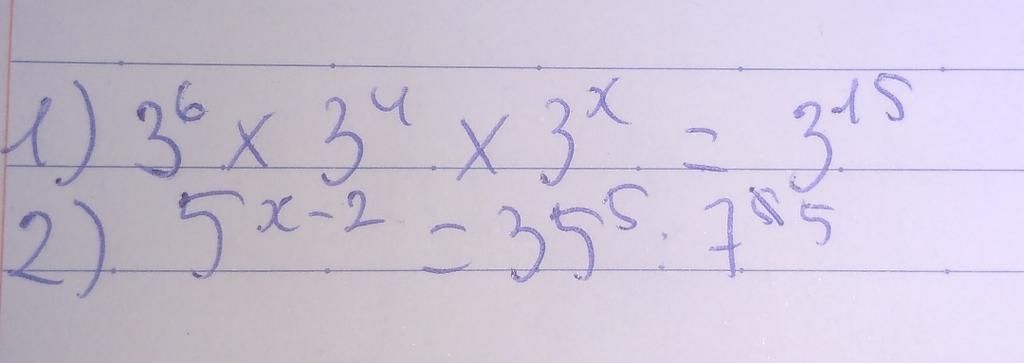 1) 3⁶ × 3⁴ × 3ˣ = 3¹⁵
2) 5ˣ⁻² = 35⁵ : 7⁵